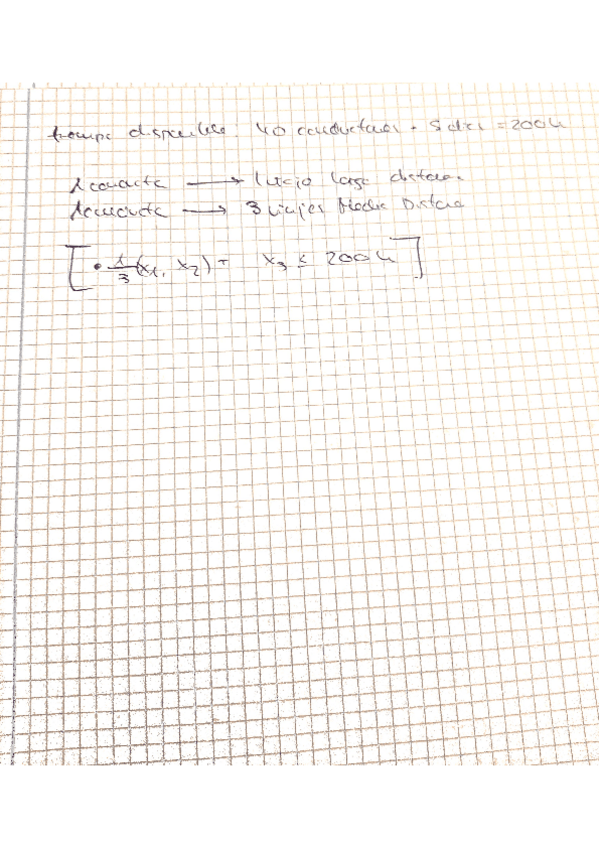 tiempo disponible: 40 conductores · 5 dias = 200h
1 conducta → 1 viaje larga distan
1 conducta → 3 viajes Media Distan
[ • 1/3 (x1, x2) + x3 ≤ 200h ]